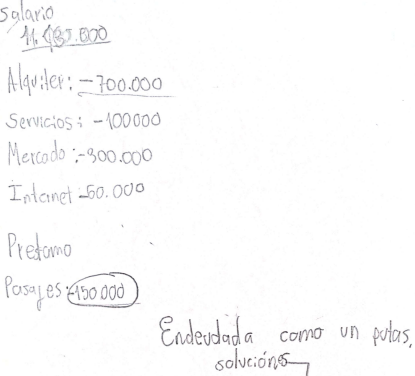 Salario
Alquiler: -700.000
Servicios: -100000
Mercado: -300.000
Internet -60.000
Pretamo
Pasajes: -150 000
Endeudada como un putas,
soluciónes